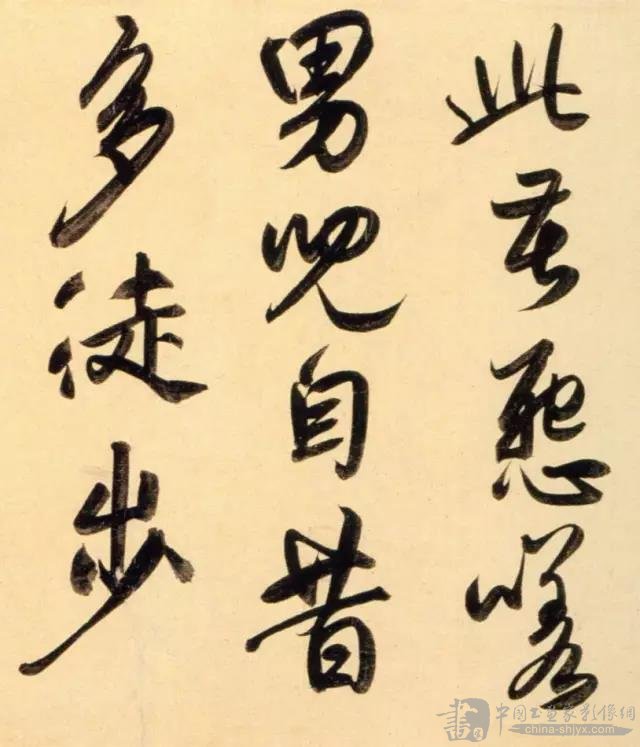 此嗟
男兒自昔
多徒步
中國书画家影像網
china-shjyx.com